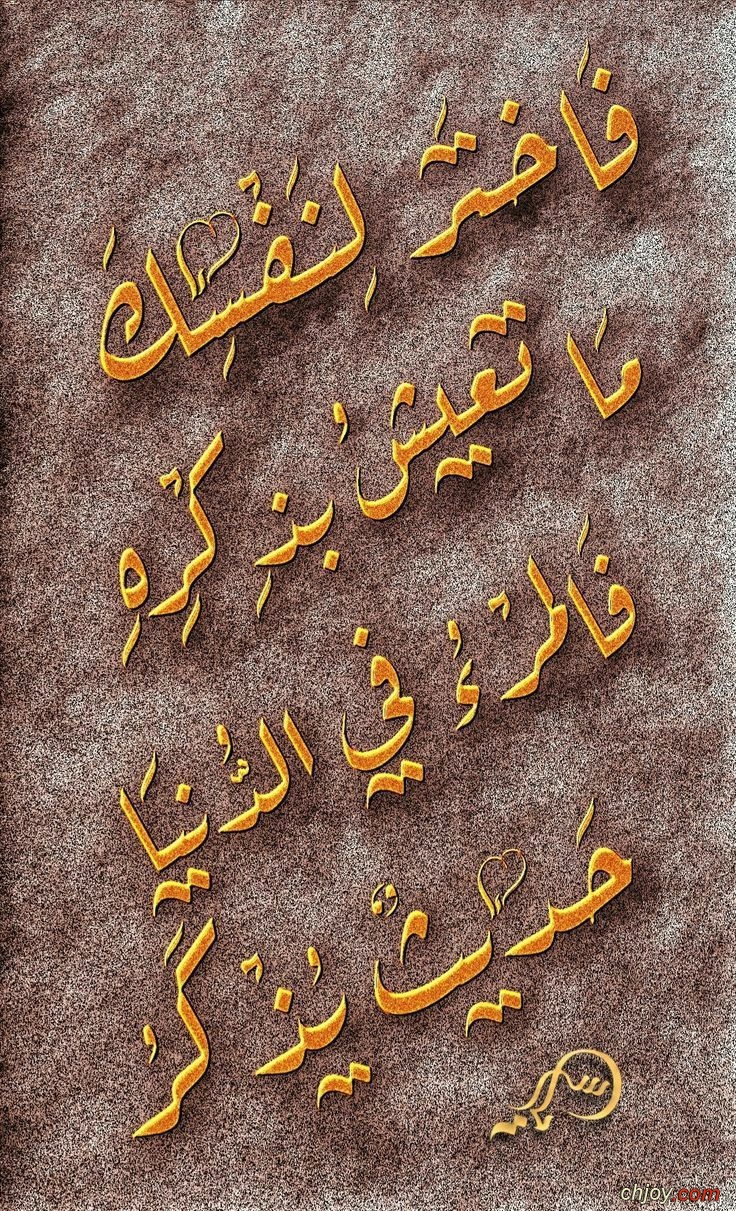 فَاخْتَرْ لِنَفْسِكَ
مَا تَعِيشُ بِذِكْرِهِ
فَالمَرْءُ فِي الدُّنْيَا
حَدِيثٌ يُذْكَرُ
chjoy.com